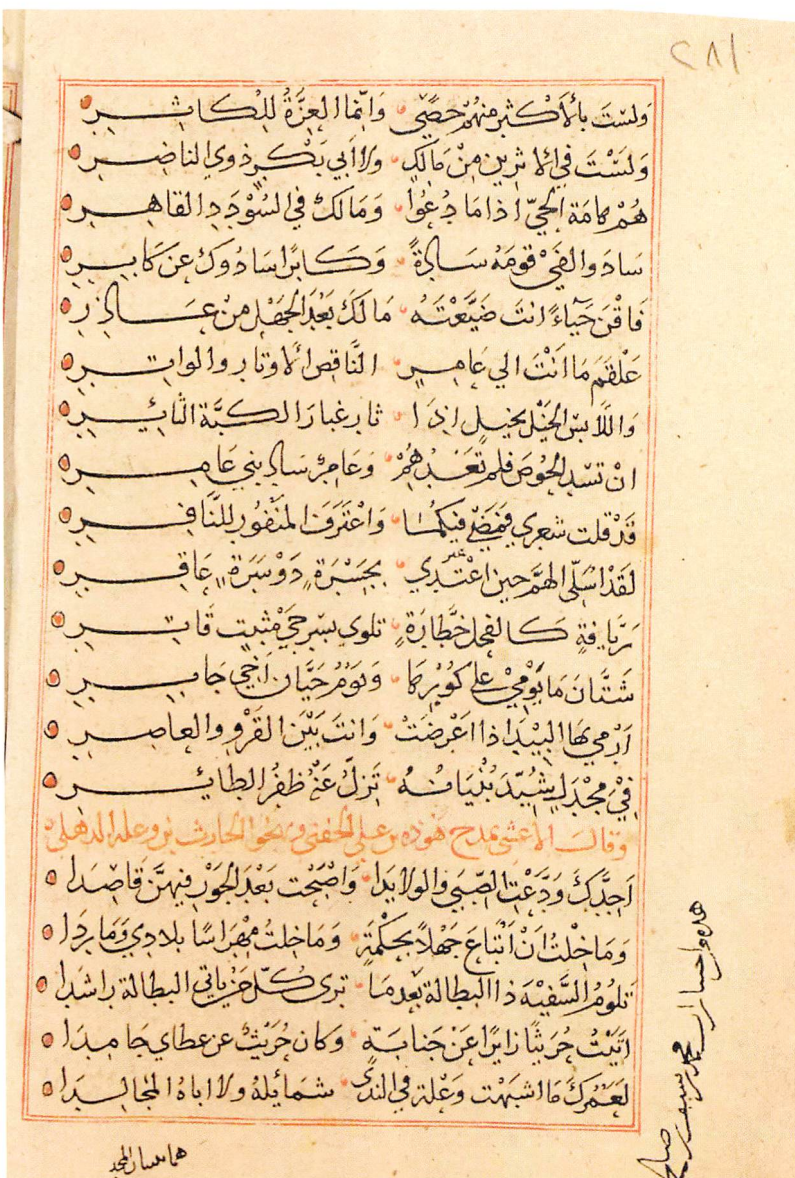 ٢٨١
وَلسْتَ بالأكْثرِ منهُمْ حِصًى وَانّما العِزَّةُ لِلْكاثِرِ
وَلَسْتَ في الاثرين مِنْ مَالِكٍ ولا ابي بَكْرٍ ذوي الناضِرِ
هُمْ هامَة الحيّ اذا مَا دُعُوا وَمَالك في السُوْدَدِ القاهِرِ
سَادَ والفَيْ قومَهُ سَادةً وَكَابرًا سَادُوكَ عن كَابِرِ
فَاقْنَ حَيَاءً انتَ ضَيَّعْتَهُ مَا لَكَ بَعْدَ الجَهْلِ مِنْ عَاذِرِ
عَلْقَمَ مَا اَنْتَ الي عَامِرٍ النَّاقِصِ الاوتار والواتِرِ
وَاللَّابسِ الخَيْل بخيلٍ اِذَا ثار غبار الكبَّة الثائِرِ
انْ تسُدِ الحُوصَ فلم تَعْدُهمْ وَعَامِرٌ سَادَ بني عَامِرِ
قَدْ قلت شعري فمَضَى فيكُمَا وَاعْتَرَفَ المَنْفُورُ للنَّافِرِ
لَقَدْ اُسَلّي الهَمَّ حين اعْتَدي بجَسْرَةٍ دَوْسَرَةٍ عَاقِرِ
زَيّافةٍ كَالفحل خَطَّارَةٍ تلوي بشرخَيْ مَيْتٍ قَاتِرِ
شَتَّانَ مَا يَوْمِيْ علي كُوْرِهَا وَيَوْمُ حَيَّان اَخي جَابِرِ
اَرْمي بهَا البَيْدَا اذا اعْرَضَتْ وَانتَ بَيْنَ القَرْوِ والعاصِرِ
فِيْ مِجْدَلٍ شُيِّدَ بُنْيَانُهُ تَزِلُّ عَنْهُ ظفُرُ الطائِرِ
وقال الاعشى يمدح هوذه بن علي الحنفي ويهجو الحارث بن وعلة الذهلي
اَجِدَّكَ وَدَّعْتَ الصِّبَى والولايدَا وَاصْبَحْت بَعْدَ الجَوْرِ فيهنَّ قَاصِدَا
وَمَا خِلْتُ اَنْ اَبْتَاعَ جَهْلاً بحكْمَةٍ وَمَا خِلتُ مِهْرَاسًا بلادي وَمَارِدَا
تلُومُ السَّفيْهَ ذا البطالة بَعْدمَا ترى كُلّ مَنْ ياتي البطالة راشدَا
اتَيْتُ حُرَيْثًا زايرًا عَنْ جَنابَةٍ وَكان حُرَيثٌ عن عطاي جَامِدَا
لعَمْرُكَ مَا اشبَهْت وَعْلة في الندَى شمَائِلهُ ولا اباهُ المُجَالِدَا